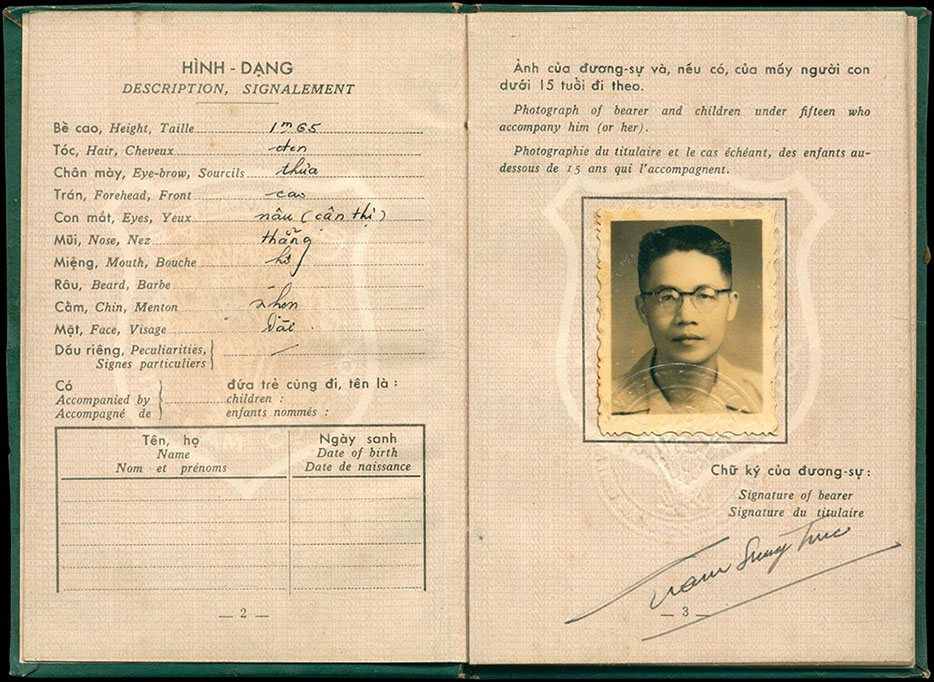 HÌNH - DẠNG
DESCRIPTION, SIGNALEMENT
Bề cao, Height, Taille 1m65
Tóc, Hair, Cheveux đen
Chân mày, Eye-brow, Sourcils thưa
Trán, Forehead, Front cao
Con mắt, Eyes, Yeux nâu (cận thị)
Mũi, Nose, Nez thẳng
Miệng, Mouth, Bouche
Râu, Beard, Barbe
Cằm, Chin, Menton nhọn
Mặt, Face, Visage Dài
Dấu riêng, Peculiarities,
Signes particuliers
Có đứa trẻ cùng đi, tên là :
Accompanied by children :
Accompagné de enfants nommés :
Tên, họ Ngày sanh
Name Date of birth
Nom et prénoms Date de naissance
— 2 —
Ảnh của đương-sự và, nếu có, của mấy người con
dưới 15 tuổi đi theo.
Photograph of bearer and children under fifteen who
accompany him (or her).
Photographie du titulaire et le cas échéant, des enfants au-
dessous de 15 ans qui l'accompagnent.
Chữ ký của đương-sự :
Signature of bearer
Signature du titulaire
— 3 —